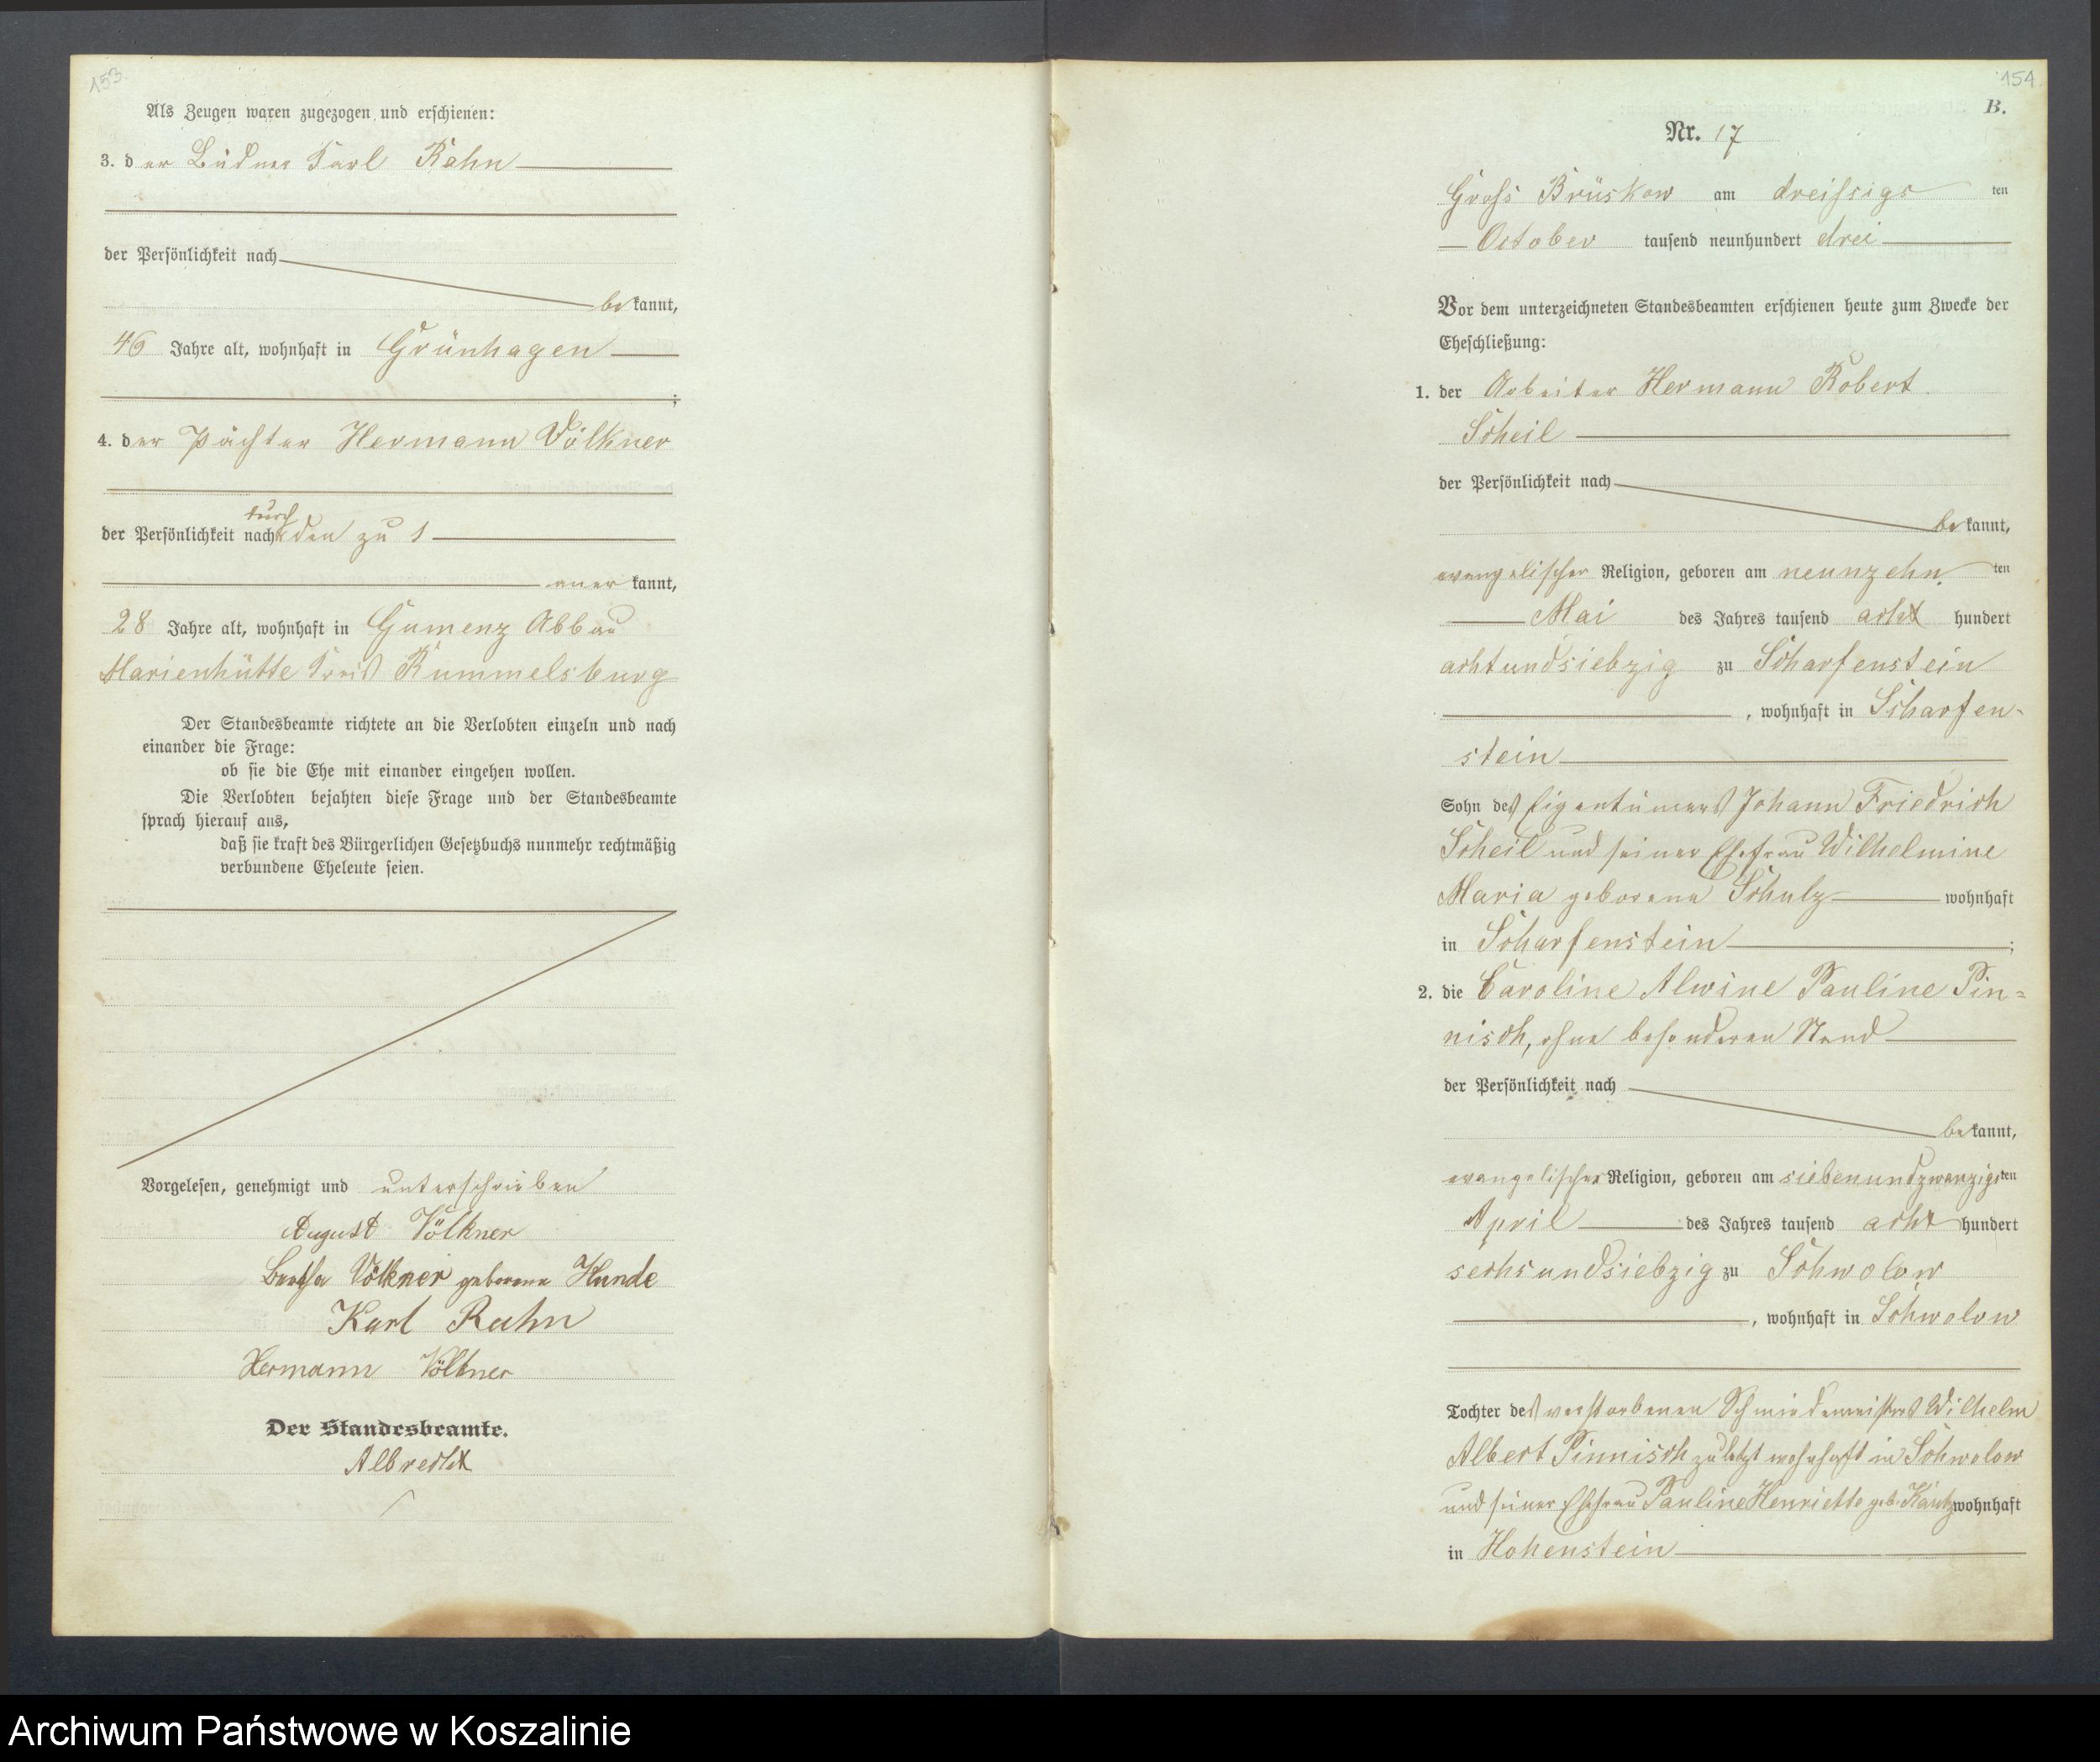 153.
Als Zeugen waren zugezogen und erschienen:
3. der Büdner Karl Rahn
der Persönlichkeit nach
bekannt,
46 Jahre alt, wohnhaft in Grünhagen
;
4. der Pächter Hermann Völkner
durch
der Persönlichkeit nach den zu 1
anerkannt,
28 Jahre alt, wohnhaft in Gumenz Abbau
Marienhütte Kreis Rummelsburg
Der Standesbeamte richtete an die Verlobten einzeln und nach
einander die Frage:
ob sie die Ehe mit einander eingehen wollen.
Die Verlobten bejahten diese Frage und der Standesbeamte
sprach hierauf aus,
daß sie kraft des Bürgerlichen Gesetzbuchs nunmehr rechtmäßig
verbundene Eheleute seien.
Vorgelesen, genehmigt und unterschrieben
August Völkner
Bertha Völkner geborene Hunde
Karl Rahn
Hermann Völkner
Der Standesbeamte.
Albrecht
154
B.
Nr. 17
Groß Brüskow am dreißigsten
October tausend neunhundert drei
Vor dem unterzeichneten Standesbeamten erschienen heute zum Zwecke der
Eheschließung:
1. der Arbeiter Hermann Robert
Scheil
der Persönlichkeit nach
bekannt,
evangelischer Religion, geboren am neunzehnten
Mai des Jahres tausend acht hundert
achtundsiebzig zu Scharfenstein
, wohnhaft in Scharfen-
stein
Sohn des Eigentümers Johann Friedrich
Scheil und seiner Ehefrau Wilhelmine
Maria geborene Schulz wohnhaft
in Scharfenstein ;
2. die Caroline Alwine Pauline Pin=
nisch, ohne besonderen Stand
der Persönlichkeit nach
bekannt,
evangelischer Religion, geboren am siebenundzwanzigsten
April des Jahres tausend acht hundert
sechsundsiebzig zu Schwolow
, wohnhaft in Schwolow
Tochter des verstorbenen Schmiedemeisters Wilhelm
Albert Pinnisch zuletzt wohnhaft in Schwolow
und seiner Ehefrau Pauline Henriette geb. wohnhaft
in Hohenstein
Archiwum Państwowe w Koszalinie